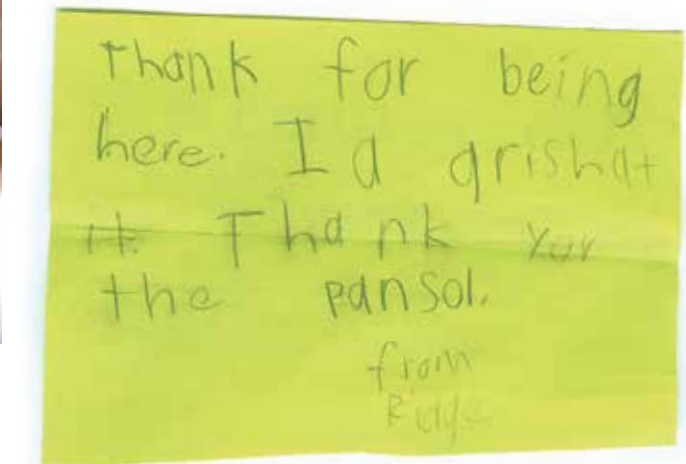 thank for being
here. I a grishat
it. Thank yur
the pansol.
from